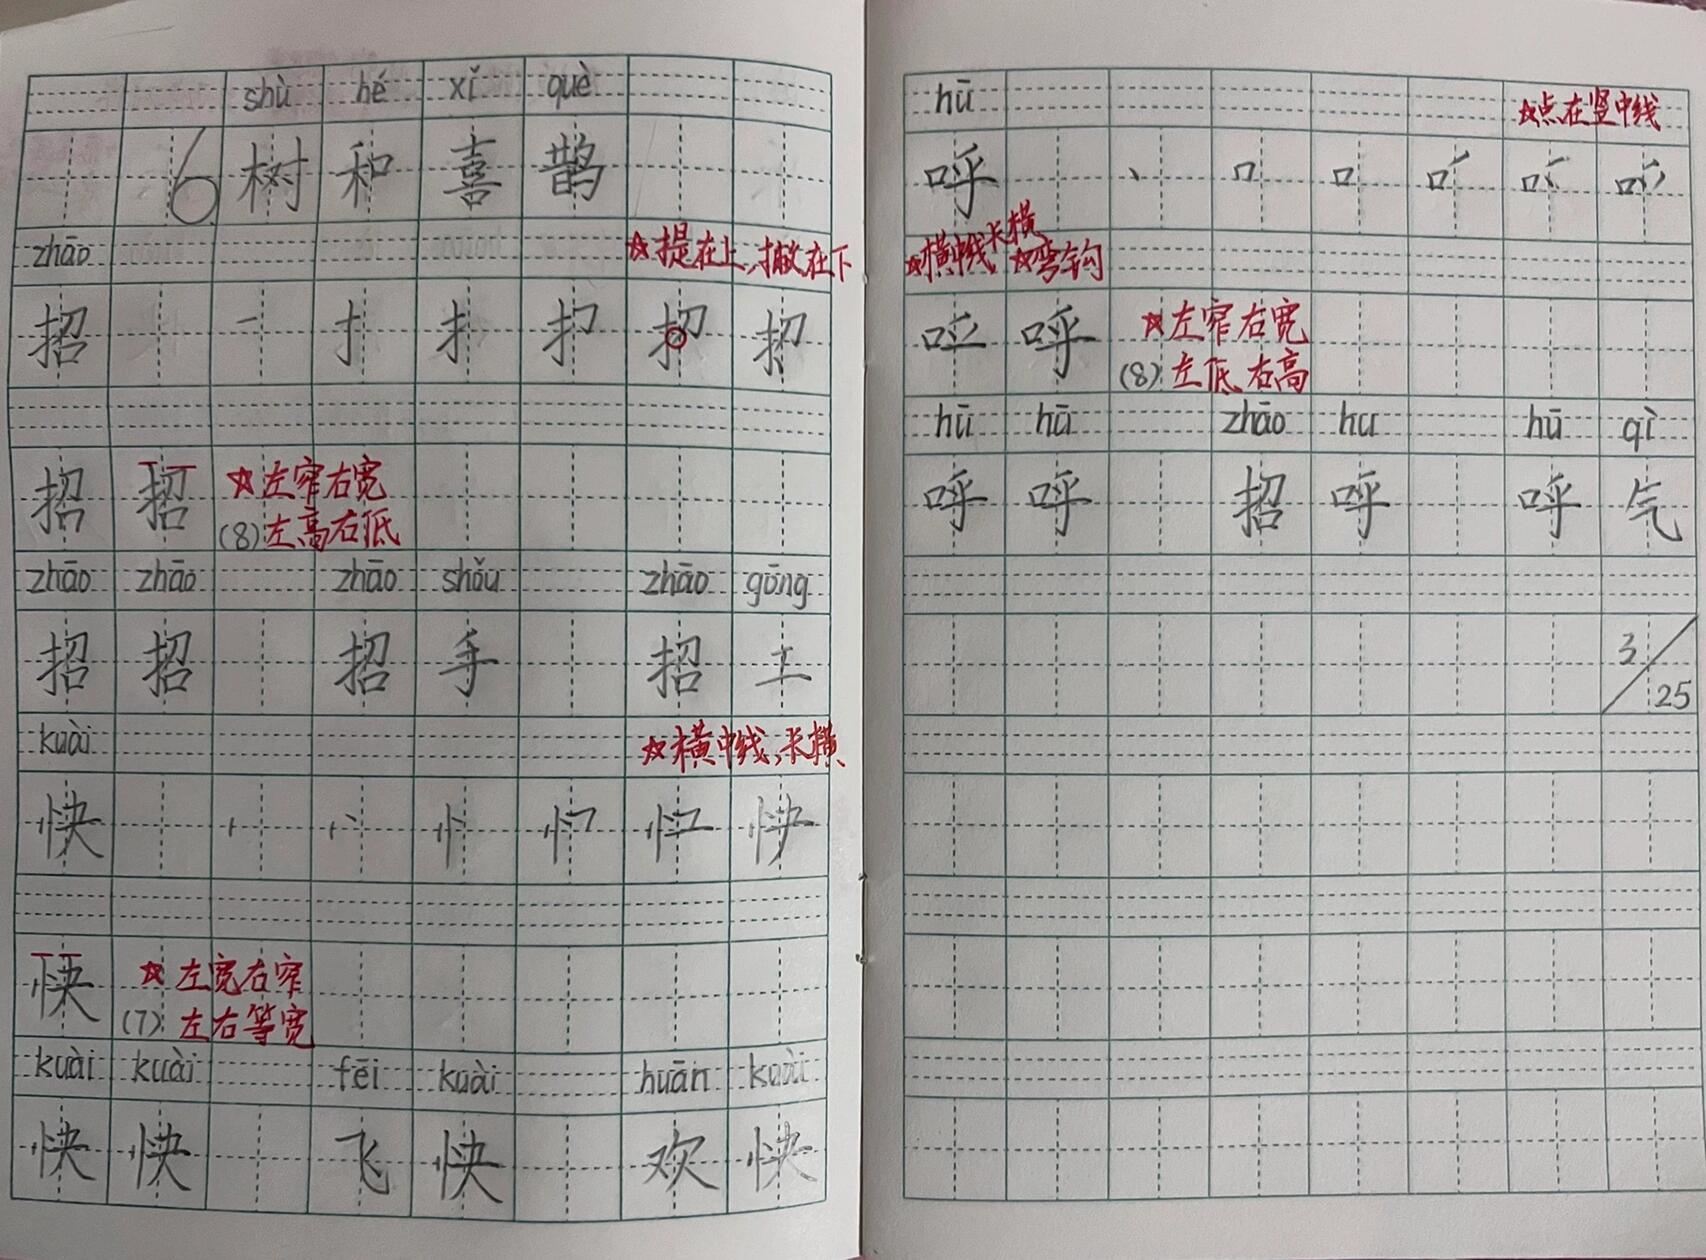 shù hé xǐ què
6 树和喜鹊
zhāo ☆提在上、撇在下
招 一 扌 扌 扌刀 招
招 招 ☆左窄右宽
(8) 左高右低
zhāo zhāo zhāo shǒu zhāo gōng
招 招 招 手 招 工
kuài ☆横中线、长横
快
快 ☆左宽右窄
(7) 左右等宽
kuài kuài fēi kuài huān kuài
快 快 飞 快 欢 快
hū ☆点在竖中线
呼 丶 口 口
☆横中线长横 ☆弯钩
呼 ☆左窄右宽
(8) 左低右高
hū hū zhāo hu hū qì
呼 呼 招 呼 呼 气
3/25